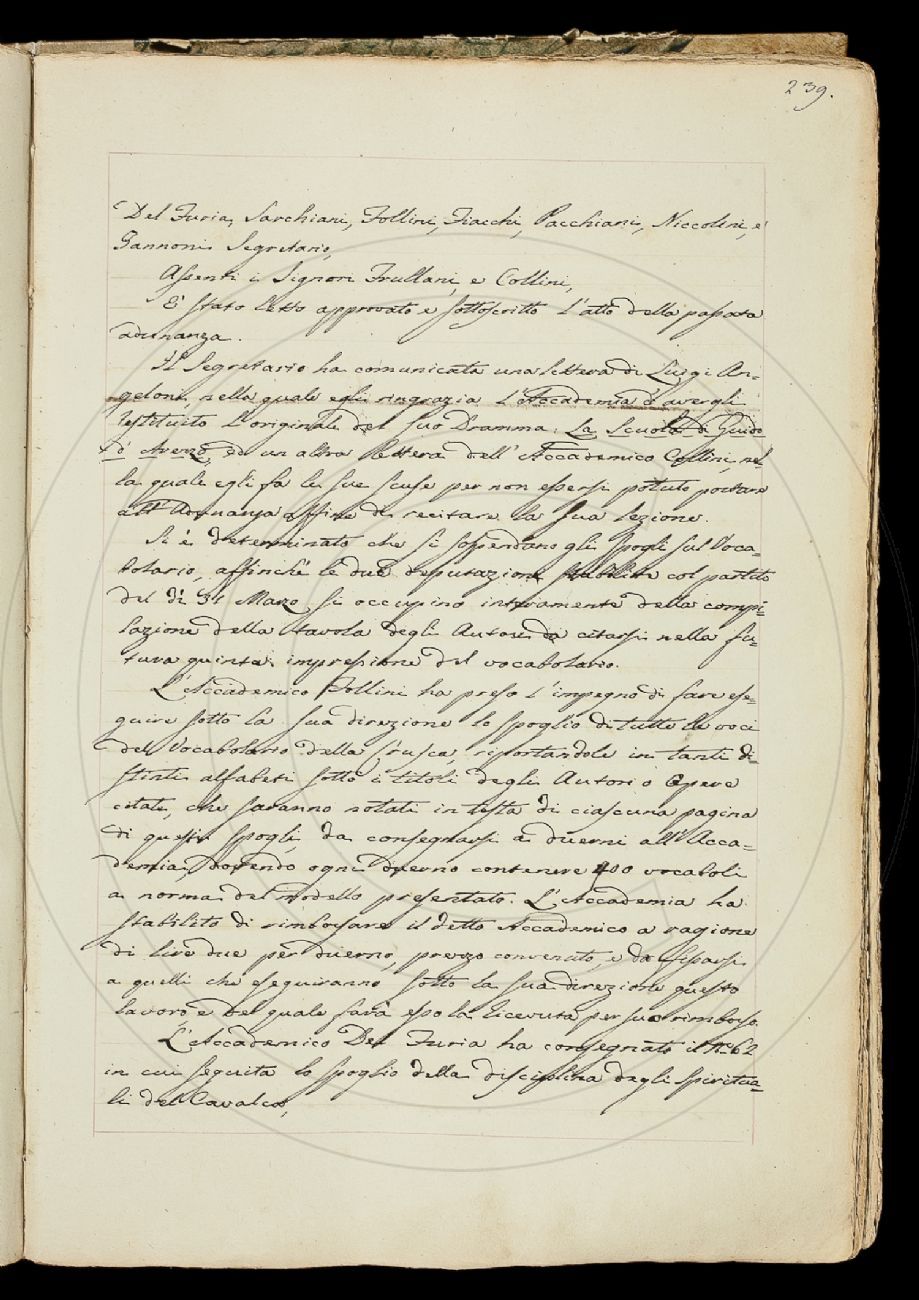 239.
Del Furia, Sarchiani, Follini, Fiacchi, Pacchiani, Niccolini, e
Zannoni Segretario,
Assenti i Signori Frullani, e Collini,
E' stato letto approvato e sottoscritto l'atto della passata
adunanza.
Il Segretario ha comunicata una lettera di Luigi An-
geloni, nella quale egli ringrazia l'Accademia d'avergli
restituito l'originale del suo Dramma: La Scuola di Guido
d'Arezzo, ed un altra lettera dell'Accademico Collini, nel
la quale egli fa le sue scuse per non essersi potuto portare
all'Adunanza affine di recitare la sua lezione.
Si è determinato che si sospendano gli spogli sul Voca-
bolario, affinchè le due deputazioni stabilite col partito
del dì 31 Marzo si occupino interamente della compi-
lazione della tavola degli Autori da citarsi nella fu-
tura quinta impressione del vocabolario.
L'Accademico Follini ha preso l'impegno di fare ese-
guire sotto la sua direzione lo spoglio di tutte le voci
del Vocabolario della Crusca, riportandole in tanti di-
stinti alfabeti sotto i titoli degli Autori o Opere
citate, che saranno notati in testa di ciascuna pagina
di questi spogli, da consegnarsi a duerni all'Acca-
demia, dovendo ogni duerno contenere 400 vocaboli
a norma del modello presentato. L'Accademia ha
stabilito di rimborsare il detto Accademico a ragione
di lire due per duerno, prezzo convenuto, e da fissarsi
a quelli che eseguiranno sotto la sua direzione questo
lavoro e del quale farà esso la ricevuta per suo rimborso.
L'Accademico Del Furia ha consegnato il N.º 62
in cui seguita lo spoglio della disciplina degli Spiritua-
li del Cavalca,